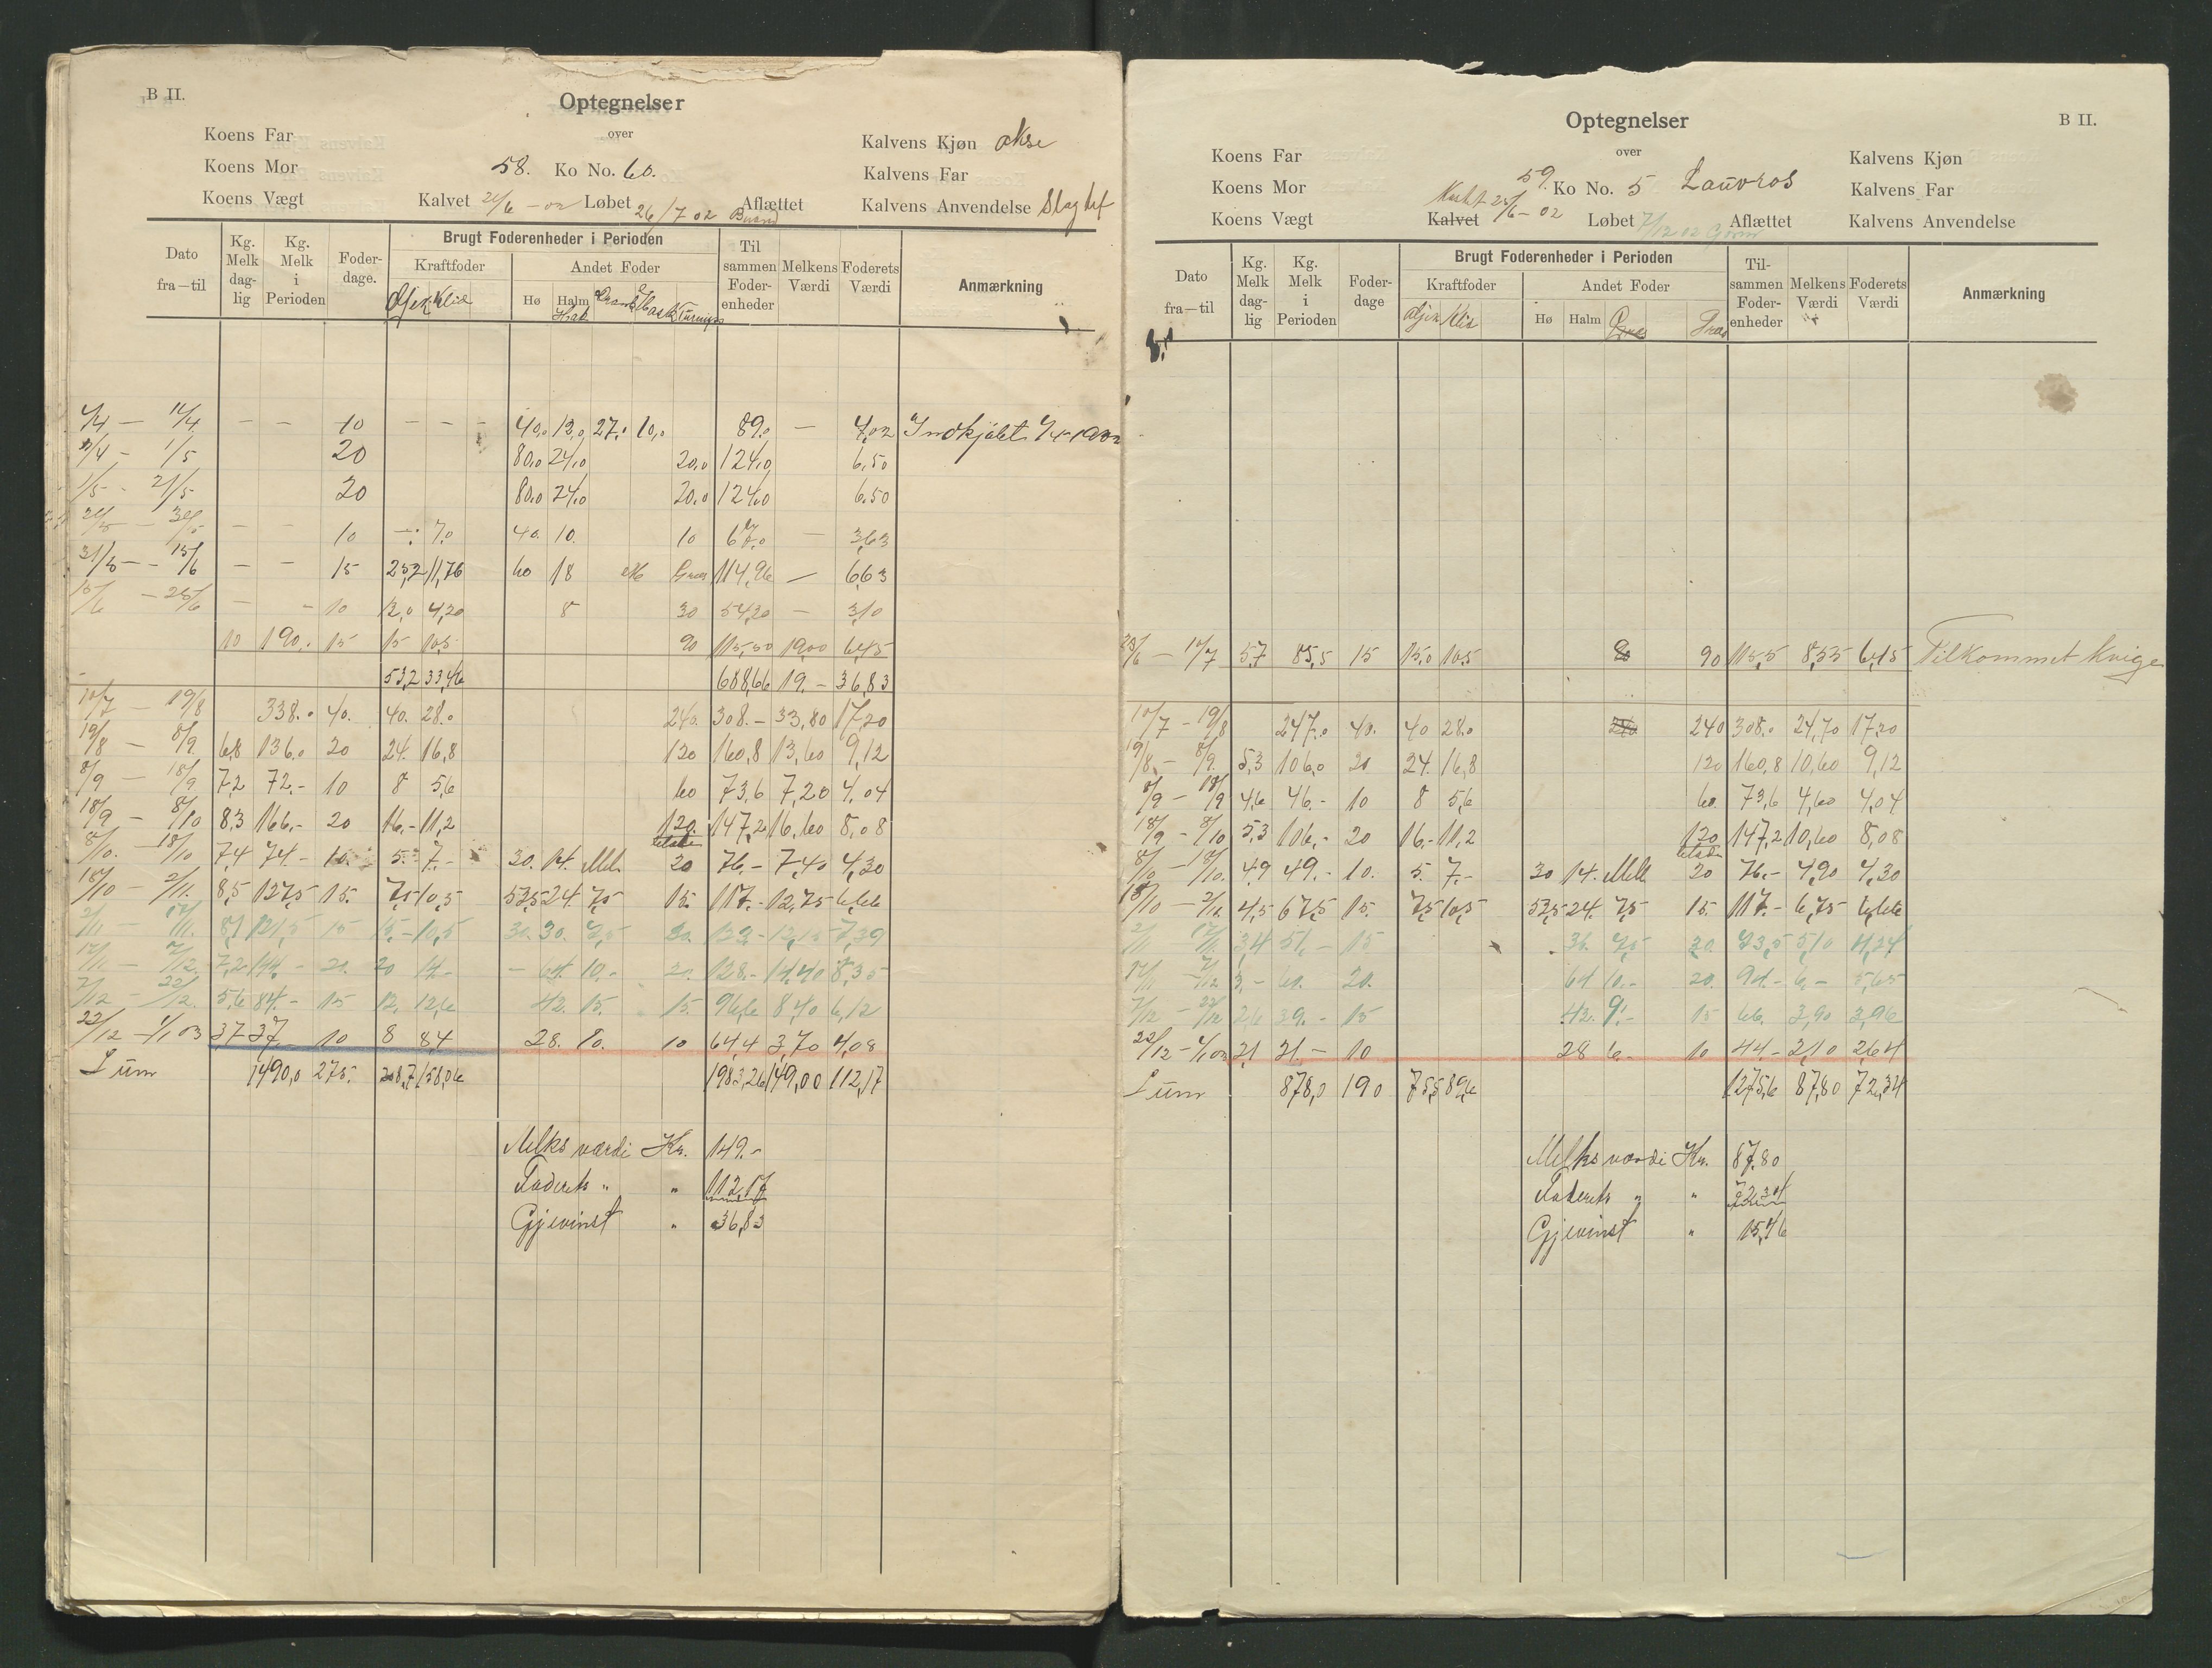 B II.
Optegnelser
over
Koens Far
Koens Mor
Koens Vægt
58. Ko No. 60.
Kalvet 24/6 - 02 Løbet 26/7 02 Aflættet
Kalvens Kjøn okse
Kalvens Far
Kalvens Anvendelse Slagtet
Dato fra—til
Kg. Melk dag- lig
Kg. Melk i Perioden
Foder- dage.
Brugt Foderenheder i Perioden
Kraftfoder
Andet Foder
Klid
Hø
Halm
Turnips
Til sammen Foder- enheder
Melkens Værdi
Foderets Værdi
Anmærkning
4/4 — 14/4 - - 10 - - - 40,0 12,0 27,0 10,0 89,0 — 4,02 Indkjøbt
1/5 20 80,0 24,0 20,0 124,0 6,50
1/5 - 21/5 20 80,0 24,0 20,0 124,0 6.50
- - 10 7,0 40. 10. 10 — 3,63
31/5 — 15/6 - - 15 25,2 11,76 60 18 114,96 — 6,63
15/6 — 25/6 - - 10 12,0 4,20 8 30 54,20 — 3,10
10 190. 15 15 10,5 90 115,50 19,00 6,45
53,2 33,46 688,66 19.- 36,83
10/7 — 19/8 338.0 40. 40. 28.0 240. 308.- 33,80 17,20
19/8 — 8/9. 6,8 136.0 20 24. 16,8 120 160,8 13,60 9,12
8/9 — 18/9 7,2 72.- 10 8 5,6 60 73,6 7,20 4,04
18/9 — 8/10 8,3 166.- 20 16.- 11,2 120. 147,2 16,60 8,08
8/10. — 18/10 7,4 74.- 10. 5. 7.- 30. 14. Melk. 20 76.- 7,40 4,30
18/10 — 2/11. 8,5 127,5 15. 7,5 10,5 52,5 24. 7,5 15. 117.- 12,75 6,66
2/11 — 17/11. 8,1 121,5 15 15.- 10,5 30. 30. 7,5 30. 123.- 12,15 7,39
17/11 — 7/12. 7,2 144.- 20. 20 14.- - 64. 10.- 20. 128.- 14,40 8,35
7/12 — 22/12. 5,6 84.- 15 12. 12,6 42. 15. 15. 96,6 8,40 6,12
22/12 — 1/1 03 3,7 37.- 10 8 8,4 28. 10. 10 64,4 3,70 4,08
Sum 1490,0 275. 208,7 158,06 1983,26 149,00 112,17
Melks værdi Kr. 149.-
Foderets " " 112,17
Gjevinst " 36,83
B II.
Optegnelser
over
Koens Far
Koens Mor
Koens Vægt
59. Ko No. 5 Lauvros
Kalvet 25/6 - 02 Løbet 7/12 02 Aflættet
Kalvens Kjøn
Kalvens Far
Kalvens Anvendelse
Dato fra—til
Kg. Melk dag- lig
Kg. Melk i Perioden
Foder- dage
Brugt Foderenheder i Perioden
Kraftfoder
Andet Foder
Klid
Hø
Halm
Til- sammen Foder- enheder
Melkens Værdi
Foderets Værdi
Anmærkning
25/6 — 10/7 5,7 85,5 15 15,0 10,5 90 115,5 8,55 6,45 Tilkommet kvige
10/7 — 19/8 247.0 40. 40 28.0 240 240 308.0 24,70 17,20
19/8. — 8/9. 5,3 106,0 20 24. 16,8 120 160,8 10,60 9,12
8/9 — 18/9 4,6 46.- 10 8 5,6 60. 73,6 4,60 4,04
18/9 — 8/10 5,3 106.- 20 16.- 11,2 120 147,2 10,60 8,08
8/10 — 18/10. 4,9 49.- 10. 5. 7.- 30 14. Melk. 20 76.- 4,90 4,30
18/10 — 2/11. 4,5 67,5 15. 7,5 10,5 52,5 24. 7,5 15. 117.- 6,75 6,66
2/11 17/11. 3,4 51.- 15 36. 7,5 30. 73,5 5,10 4,24
17/11 — 7/12 3.- 60. 20. 64 10.- 20. 94.- 6.- 5,65
7/12 — 22/12 2,6 39.- 15 42. 9.- 15 66. 3,90 3,96
22/12 — 1/1 03 2,1 21.- 10 28 6.- 10 44.- 2,10 2,64
Sum 878,0 190 75,5 89,6 1275,6 87,80 72,34
Melks værdi Kr. 87,80
Foderets " " 72,34
Gjevinst " 15,46